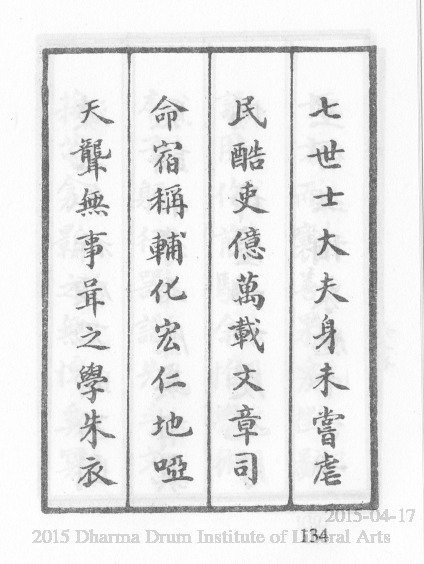 七世士大夫身未嘗虐
民酷吏億萬載文章司
命宿稱輔化宏仁地啞
天聾無事咠之學朱衣
134
2015-04-17
2015 Dharma Drum Institute of Liberal Arts